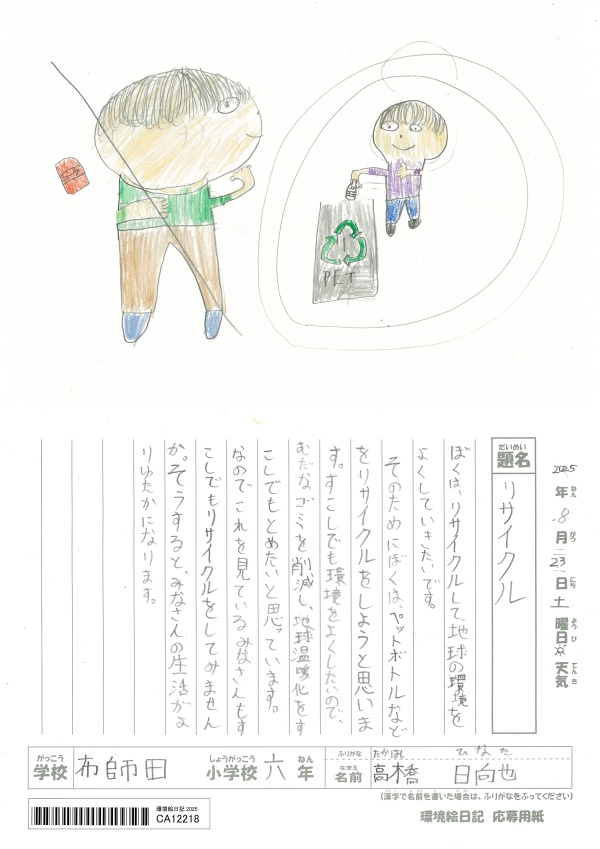 PET
2025年8月23日土曜日天気
ねん
がつ
にち
ようび
てんき
だいめい
題名
リサイクル
ぼくは、リサイクルして、地球の環境を
よくしていきたいです。
そのためにぼくは、ペットボトルなど
をリサイクルをしようと思いま
す。すこしでも環境をよくしたいので、
むだなゴミを削減し、地球温暖化をす
こしでもとめたいと思っています。
なのでこれを見ているみなさんもす
こしでもリサイクルをしてみません
か。そうすると、みなさんの生活がよ
りゆたかになります。
がっこう
学校
布師田
しょうがっこう
小学校
六
ねん
年
ふりがな
なまえ
名前
たかはし
ひなた
高橋 日向也
(漢字で名前を書いた場合は、ふりがなをふってください)
環境絵日記 2025
CA12218
環境絵日記 応募用紙